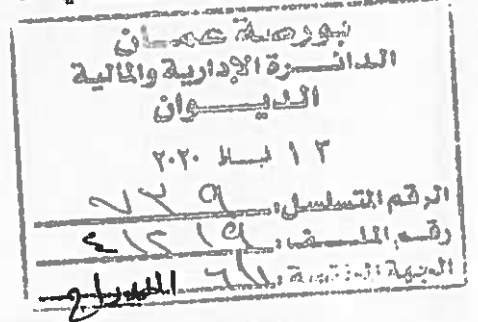 بورصة عمان
الدائرة الإدارية والمالية
الديوان
١٣ شباط ٢٠٢٠
الرقم المتسلسل: ٧٣٩
رقم الملف: ٤١٢١٩
الجهة المختصة: